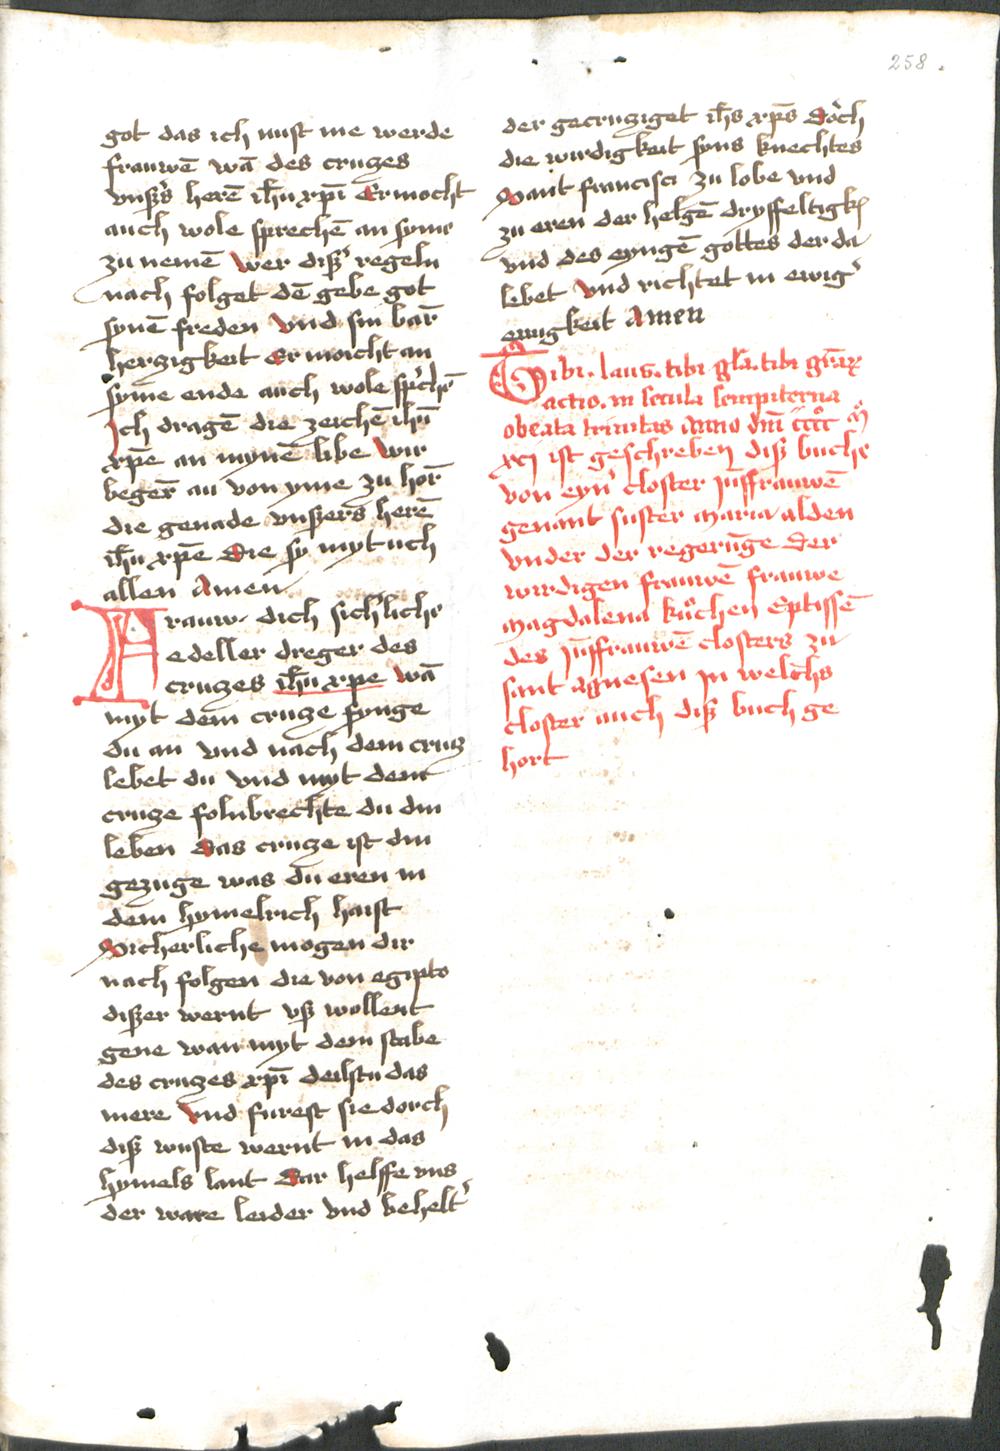 258.
got das ich nust me werde
frauwē wā des cruczes
vnßs herē ihū xpī Er mocht
auch wole sprechē an syme
zu nemē wer dißer regeln
nach folget dē gebe got
synē freden vnd sin bar
herzigkeit Er moicht an
syme ende auch wole sprchē
Ich dragē die zeichē ihū
xpē an mynē libe wir
begerē an von yme zu horē
die genade vnßers herē
ihū xpē Die sy myt uch
allen Amen
Frauw dich sichˀliche
edeller dreger des
cruczes ihū xpe wā
myt dem crucze synge
du an vnd nach dem crucz
lebet du vnd myt dem
crucze folnbrechte du din
leben Das crucze ist din
gezuge was du eren in
dem hymelrich haist
Sicherliche mogen dir
nach folgen die von egipto
dißer wernt vß wollent
gene wan myt dem stabe
des cruczes xpī deilstu das
mere vnd furest sie dorch
diß wuste wernt in das
hymels lant Dar helffe vns
der ware leider vnd beheltˀ
der gecrucziget ihs xps Doch
die wirdigkeit syns knechtes
Sant francisci zu lobe vnd
zu eren der helgē dryffeltigkß
vnd des eyngē gottes der da
lebet vnd richtet in ewigˀ
ewigkeit Amen
Tibi laus tibi gla tibi grar
actio in secula sempiterna
o beata trinitas Anno dni M cccc
xxj ist geschreben diß buche
von eynˀ closter jūffrauwē
genāt suster Maria alden
vnder der regerūge der
wirdigen frauwē frauwe
Magdalena kuchen Eptissē
des jūffrauwē closters zu
sant Agnesen In welchs
closter auch diß buch ge
hort